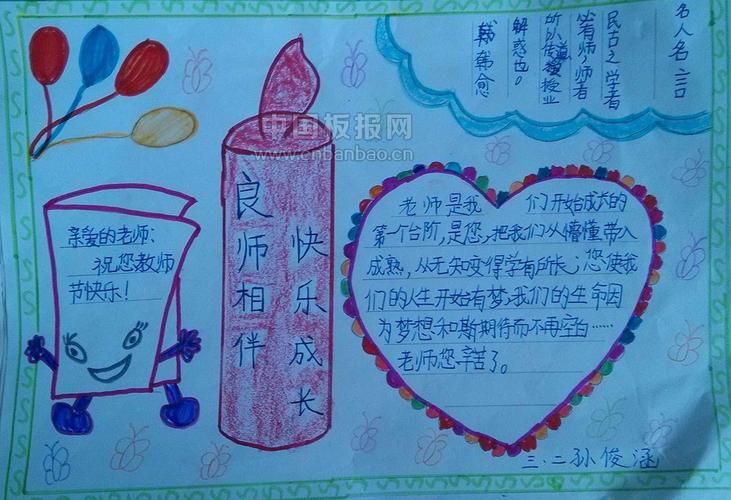 名人名言
民古之学者
必有师,师者
所以传道授业
解惑也。
韩愈
中国板报网
www.cnbanbao.cn
亲爱的老师:
祝您教师
节快乐!
良师相伴
快乐成长
老师是我 们开始成长的
第一个台阶,是您,把我们从懵懂带入
成熟,从无知变得学有所长,您使我
们的人生开始有梦,我们的生命因
为梦想和斯期待而不再空白……
老师您辛苦了。
三.二孙俊涵